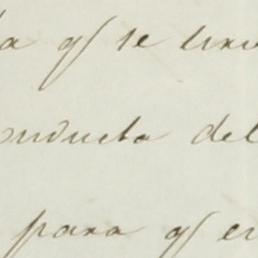 a q/ se
onducta del
para q/ en